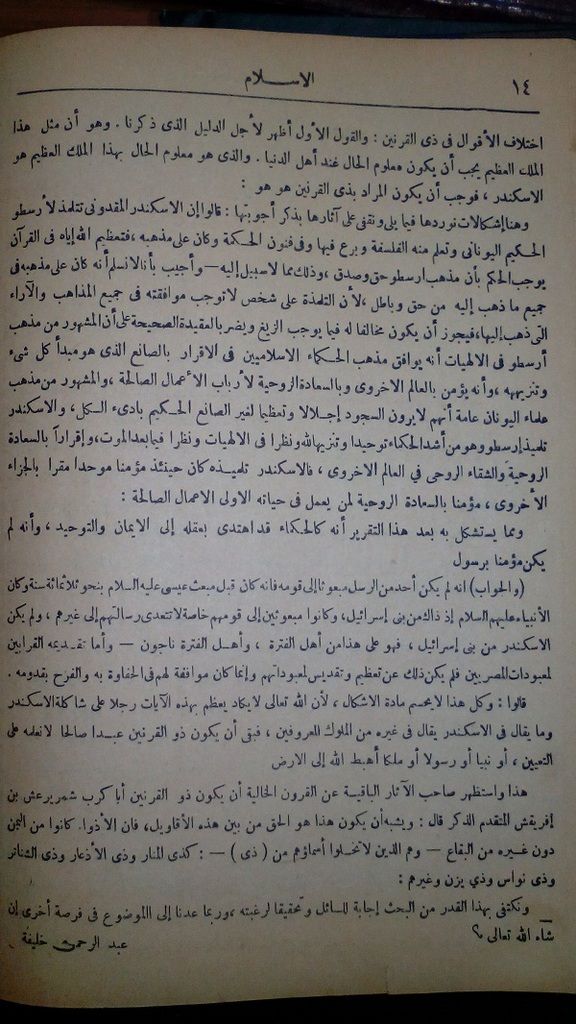 ١٤
الاسلام
اختلاف الأقوال فى ذى القرنين : والقول الأول أظهر لأجل الدليل الذى ذكرنا . وهو أن مثل هذا
الملك العظيم يجب أن يكون معلوم الحال عند أهل الدنيا . والذى هو معلوم الحال بهذا الملك العظيم هو
الاسكندر ، فوجب أن يكون المراد بذى القرنين هو هو :
وهنا إشكالات نوردها فيما يلى ونقفى على آثارها بذكر أجوبتها : قالوا إن الاسكندر المقدونى تتلمذ لأرسطو
الحكيم اليونانى وتعلم منه الفلسفة وبرع فيها وفى فنون الحكمة وكان على مذهبه ، فتعظيم الله إياه فى القرآن
يوجب الحكم بأن مذهب ارسطو حق وصدق ، وذلك مما لاسبيل إليه — وأجيب بأنا لانسلم أنه كان على مذهبه فى
جميع ما ذهب إليه من حق وباطل ، لأن التلمذة على شخص لاتوجب موافقته فى جميع المذاهب والآراء
التى ذهب إليها ، فيجوز أن يكون مخالفا له فيما يوجب الزيغ ويضر بالعقيدة الصحيحة على أن المشهور من مذهب
أرسطو فى الالهيات أنه يوافق مذهب الحكماء الاسلاميين فى الاقرار بالصانع الذى هو مبدأ كل شىء
وتنزيهه ، وأنه يؤمن بالعالم الاخروى وبالسعادة الروحية لأرباب الأعمال الصالحة ، والمشهور من مذهب
علماء اليونان عامة أنهم لايرون السجود إجلالا وتعظيما لغير الصانع الحكيم بادىء الكل ، والاسكندر
تلميذ إرسطو وهو من أشد الحكماء توحيدا وتنزيها لله ونظرا فى الالهيات ونظرا فيما بعد الموت ، وإقرارآ بالسعادة
الروحية والشقاء الروحى فى العالم الاخروى ، فالاسكندر تلميذه كان حينئذ مؤمنا موحدا مقرا بالجزاء
الأخروى ، مؤمنا بالسعادة الروحية لمن يعمل فى حياته الاولى الاعمال الصالحة :
ومما يستشكل به بعد هذا التقرير أنه كالحكماء قد اهتدى بعقله إلى الايمان والتوحيد ، وأنه لم
يكن مؤمنا برسول
(والجواب) انه لم يكن أحد من الرسل مبعوثا إلى قومه فانه كان قبل مبعث عيسى عليه السلام بنحو ثلاثمائة سنة وكان
الأنبياء عليهم السلام إذ ذاك من بنى إسرائيل ، وكانوا مبعوثين إلى قومهم خاصة لاتتعدى رسالتهم إلى غيرهم ، ولم يكن
الاسكندر من بنى إسرائيل ، فهو على هذا من أهل الفترة ، وأهل الفترة ناجون — وأما تقديمه القرابين
لمعبودات المصريين فلم يكن ذلك عن تعظيم وتقديس لمعبوداتهم وإنما كان موافقة لهم فى الحفاوة به والفرح بقدومه .
قالوا : وكل هذا لايحسم مادة الاشكال ، لأن الله تعالى لايكاد يعظم بهذه الآيات رجلا على شاكلة الاسكندر
وما يقال فى الاسكندر يقال فى غيره من الملوك المعروفين ، فبقى أن يكون ذو القرنين عبدا صالحا لانعلمه على
التعيين ، أو نبيا أو رسولا أو ملكا أهبط الله إلى الارض
هذا واستظهر صاحب الآثار الباقية عن القرون الخالية أن يكون ذو القرنين أبا كرب شمر يرعش بن
إفريقش المتقدم الذكر قال : ويشبه أن يكون هذا هو الحق من بين هذه الأقاويل ، فان الأذواء كانوا من اليمن
دون غيره من البقاع — وهم الذين لاتخلوا أسماؤهم من ( ذى ) — : كذى المنار وذى الأذعار وذى الشناتر
وذى نواس وذي يزن وغيرهم :
ونكتفى بهذا القدر من البحث إجابة للسائل وتحقيقا لرغبته ، وربما عدنا إلى الموضوع فى فرصة أخرى إن
شاء الله تعالى ؟
عبد الرحمن خليفة